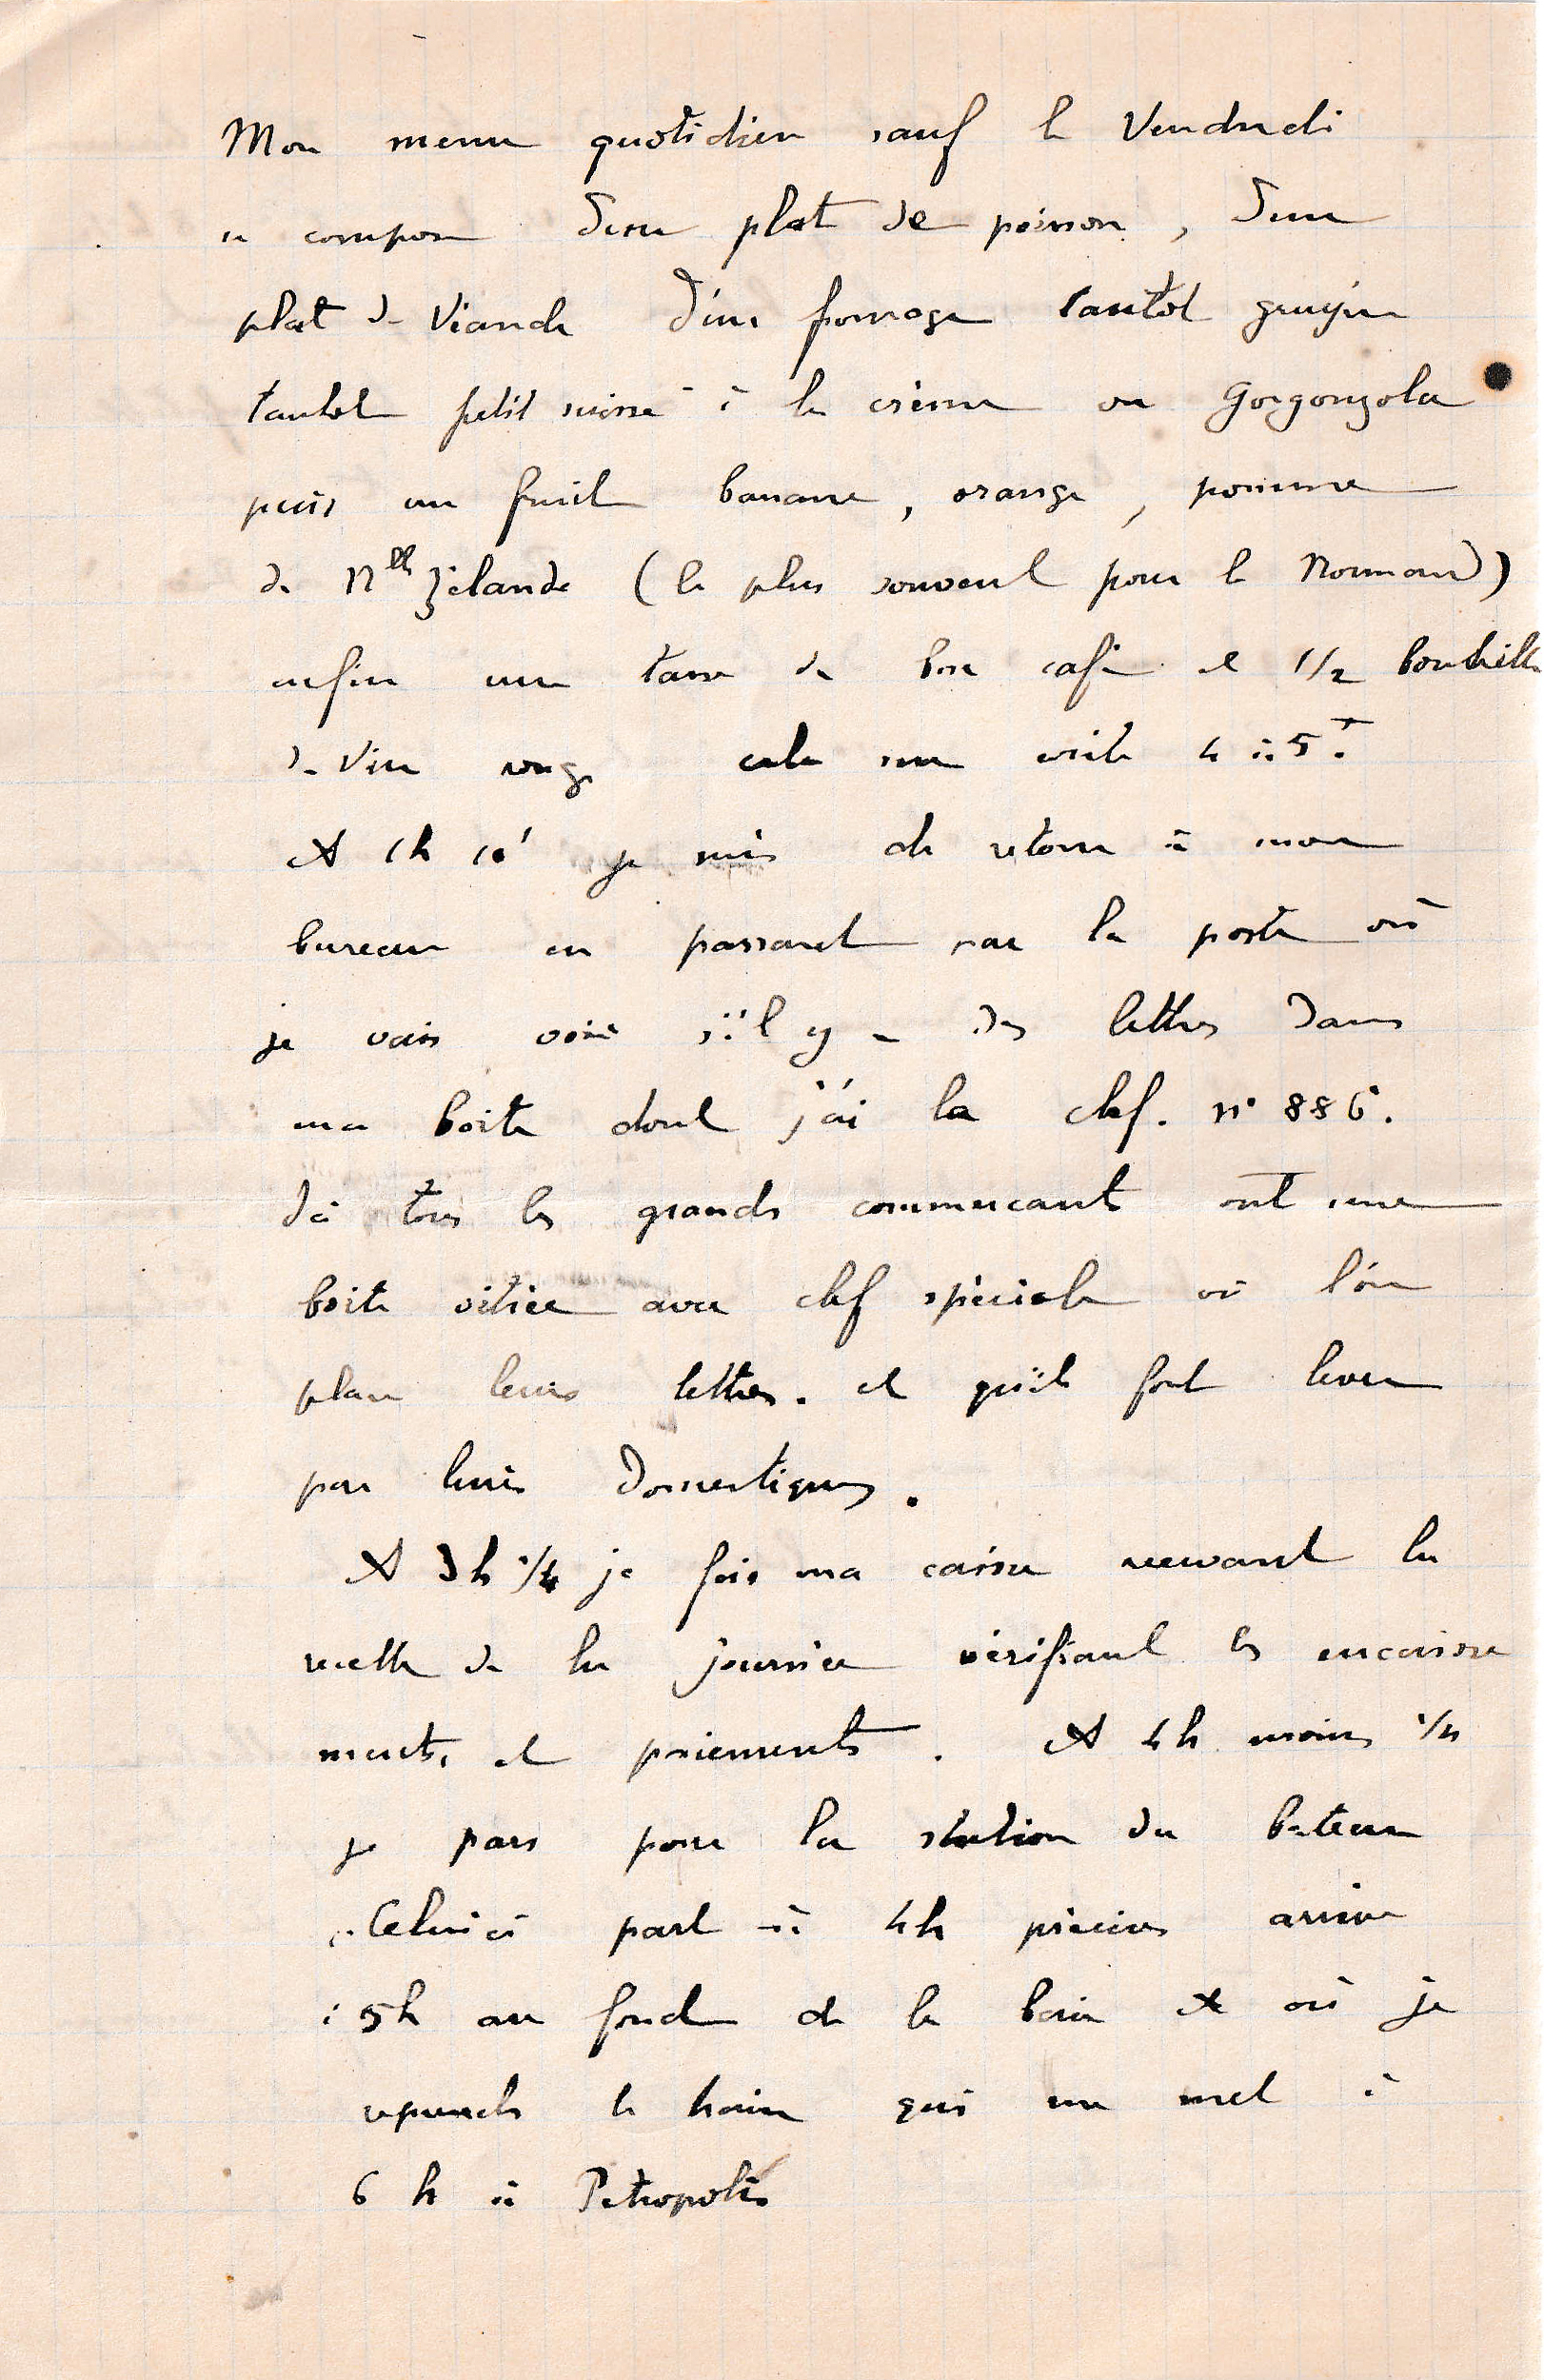 Mon menu quotidien sauf le Vendredi
se compose d'un plat de poisson, d'un
plat de Viande d'un fromage tantôt gruyère
tantot petit suisse à la crème ou Gorgonzola
puis un fruit banane, orange, pomme
de Nlle Zélande (le plus souvent pour le Normand)
enfin une tasse de bon café et 1/2 bouteille
de Vin rouge cela me coûte 4 à 5
A 1h 10' je suis de retour à mon
bureau en passant par la poste où
je vais voir s'il y a des lettres dans
ma boite dont j'ai la clef. n° 886.
Ici tous les grands commercants ont une
boite vitrée avec clef spéciale où l'on
place leurs lettres. et qu'ils font lever
par leurs domestiques.
A 3h 1/4 je fais ma caisse recevant la
recette de la journée vérifiant les encaisse
ments et paiements. A 4h moins 1/4
je pars pour la station du bateau
Celui ci part à 4h précises arrive
à 5h au fond de la baie et où je
reprends le train qui me met à
6 h à Petropolis